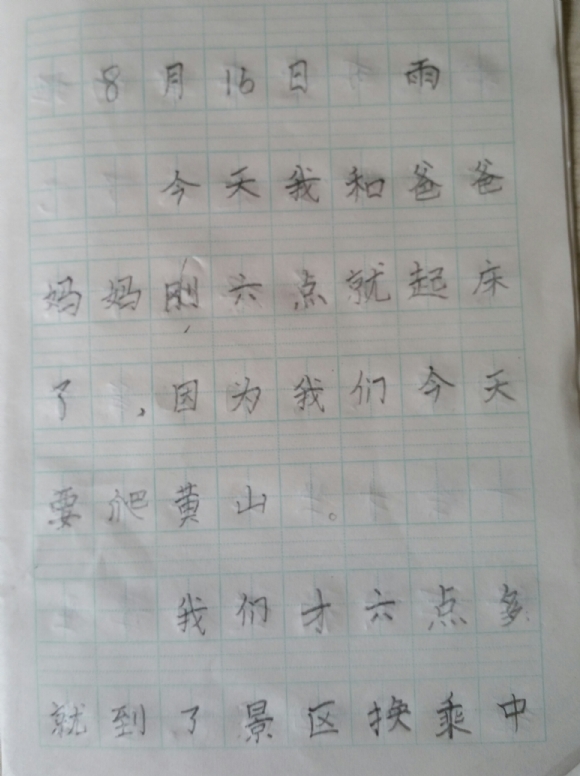 8月16日 雨
今天我和爸爸
妈妈刚六点就起床
了,因为我们今天
要爬黄山。
我们才六点多
就到了景区换乘中